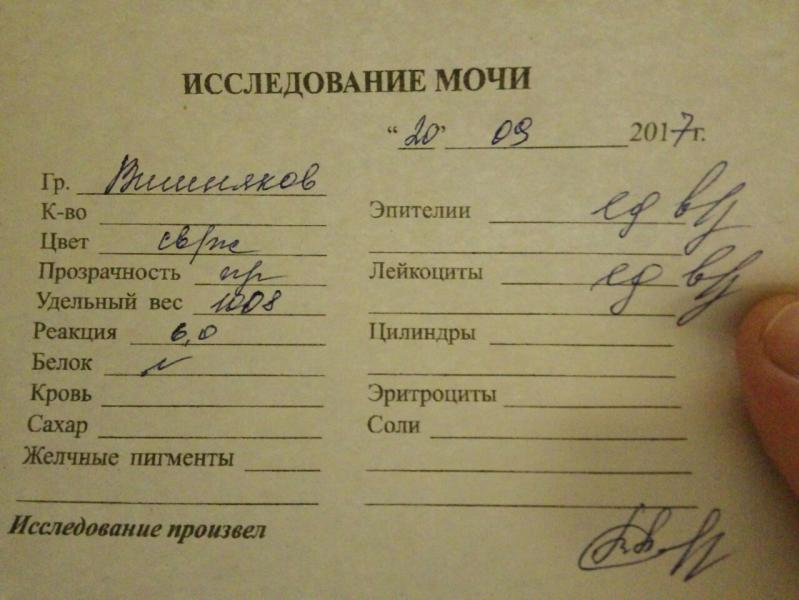 ИССЛЕДОВАНИЕ МОЧИ
"20" 09 2017г.
Гр. Вишняков
К-во
Цвет св/ж
Прозрачность пр
Удельный вес 1008
Реакция 6,0
Белок
Кровь
Сахар
Желчные пигменты
Эпителии ед
Лейкоциты ед
Цилиндры
Эритроциты
Соли
Исследование произвел